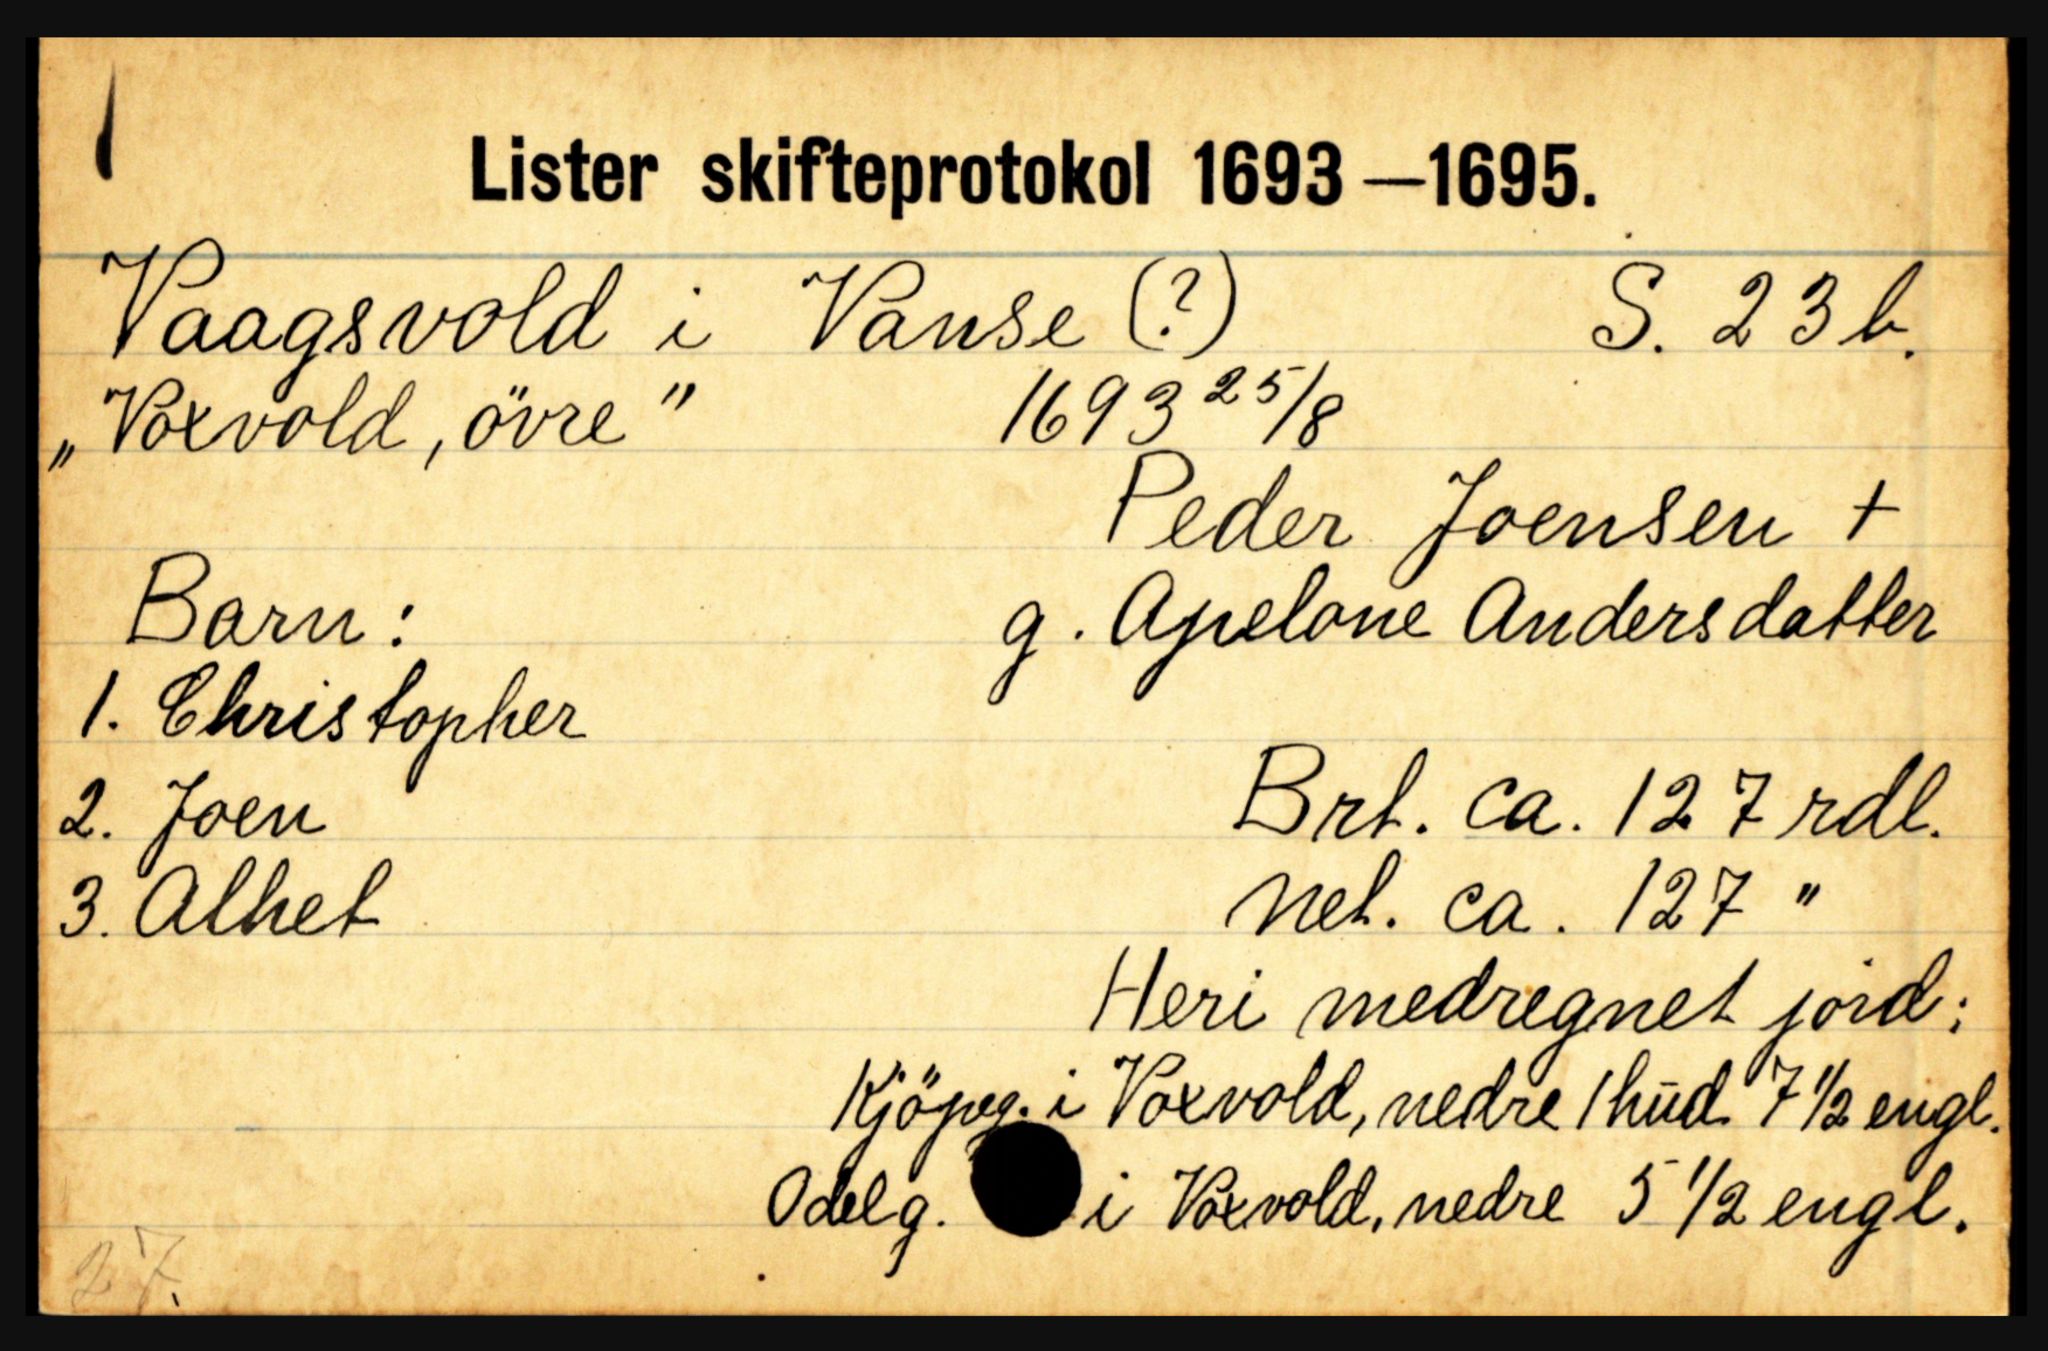 Lister skifteprotokol 1693—1695.
Vaagsvold i Vanse (?) S. 23 b.
„Voxvold, övre" 1693 25/8
Peder Joensen +
Barn: g. Apelone Andersdatter
1. Christopher
2. Joen Brt. ca. 127 rdl.
3. Alhet Net. ca. 127 "
Heri medregnet jord:
Kjöpeg. i Voxvold, nedre 1 hud 7 1/2 engl.
Odelg. i Voxvold, nedre 5 1/2 engl.
27.